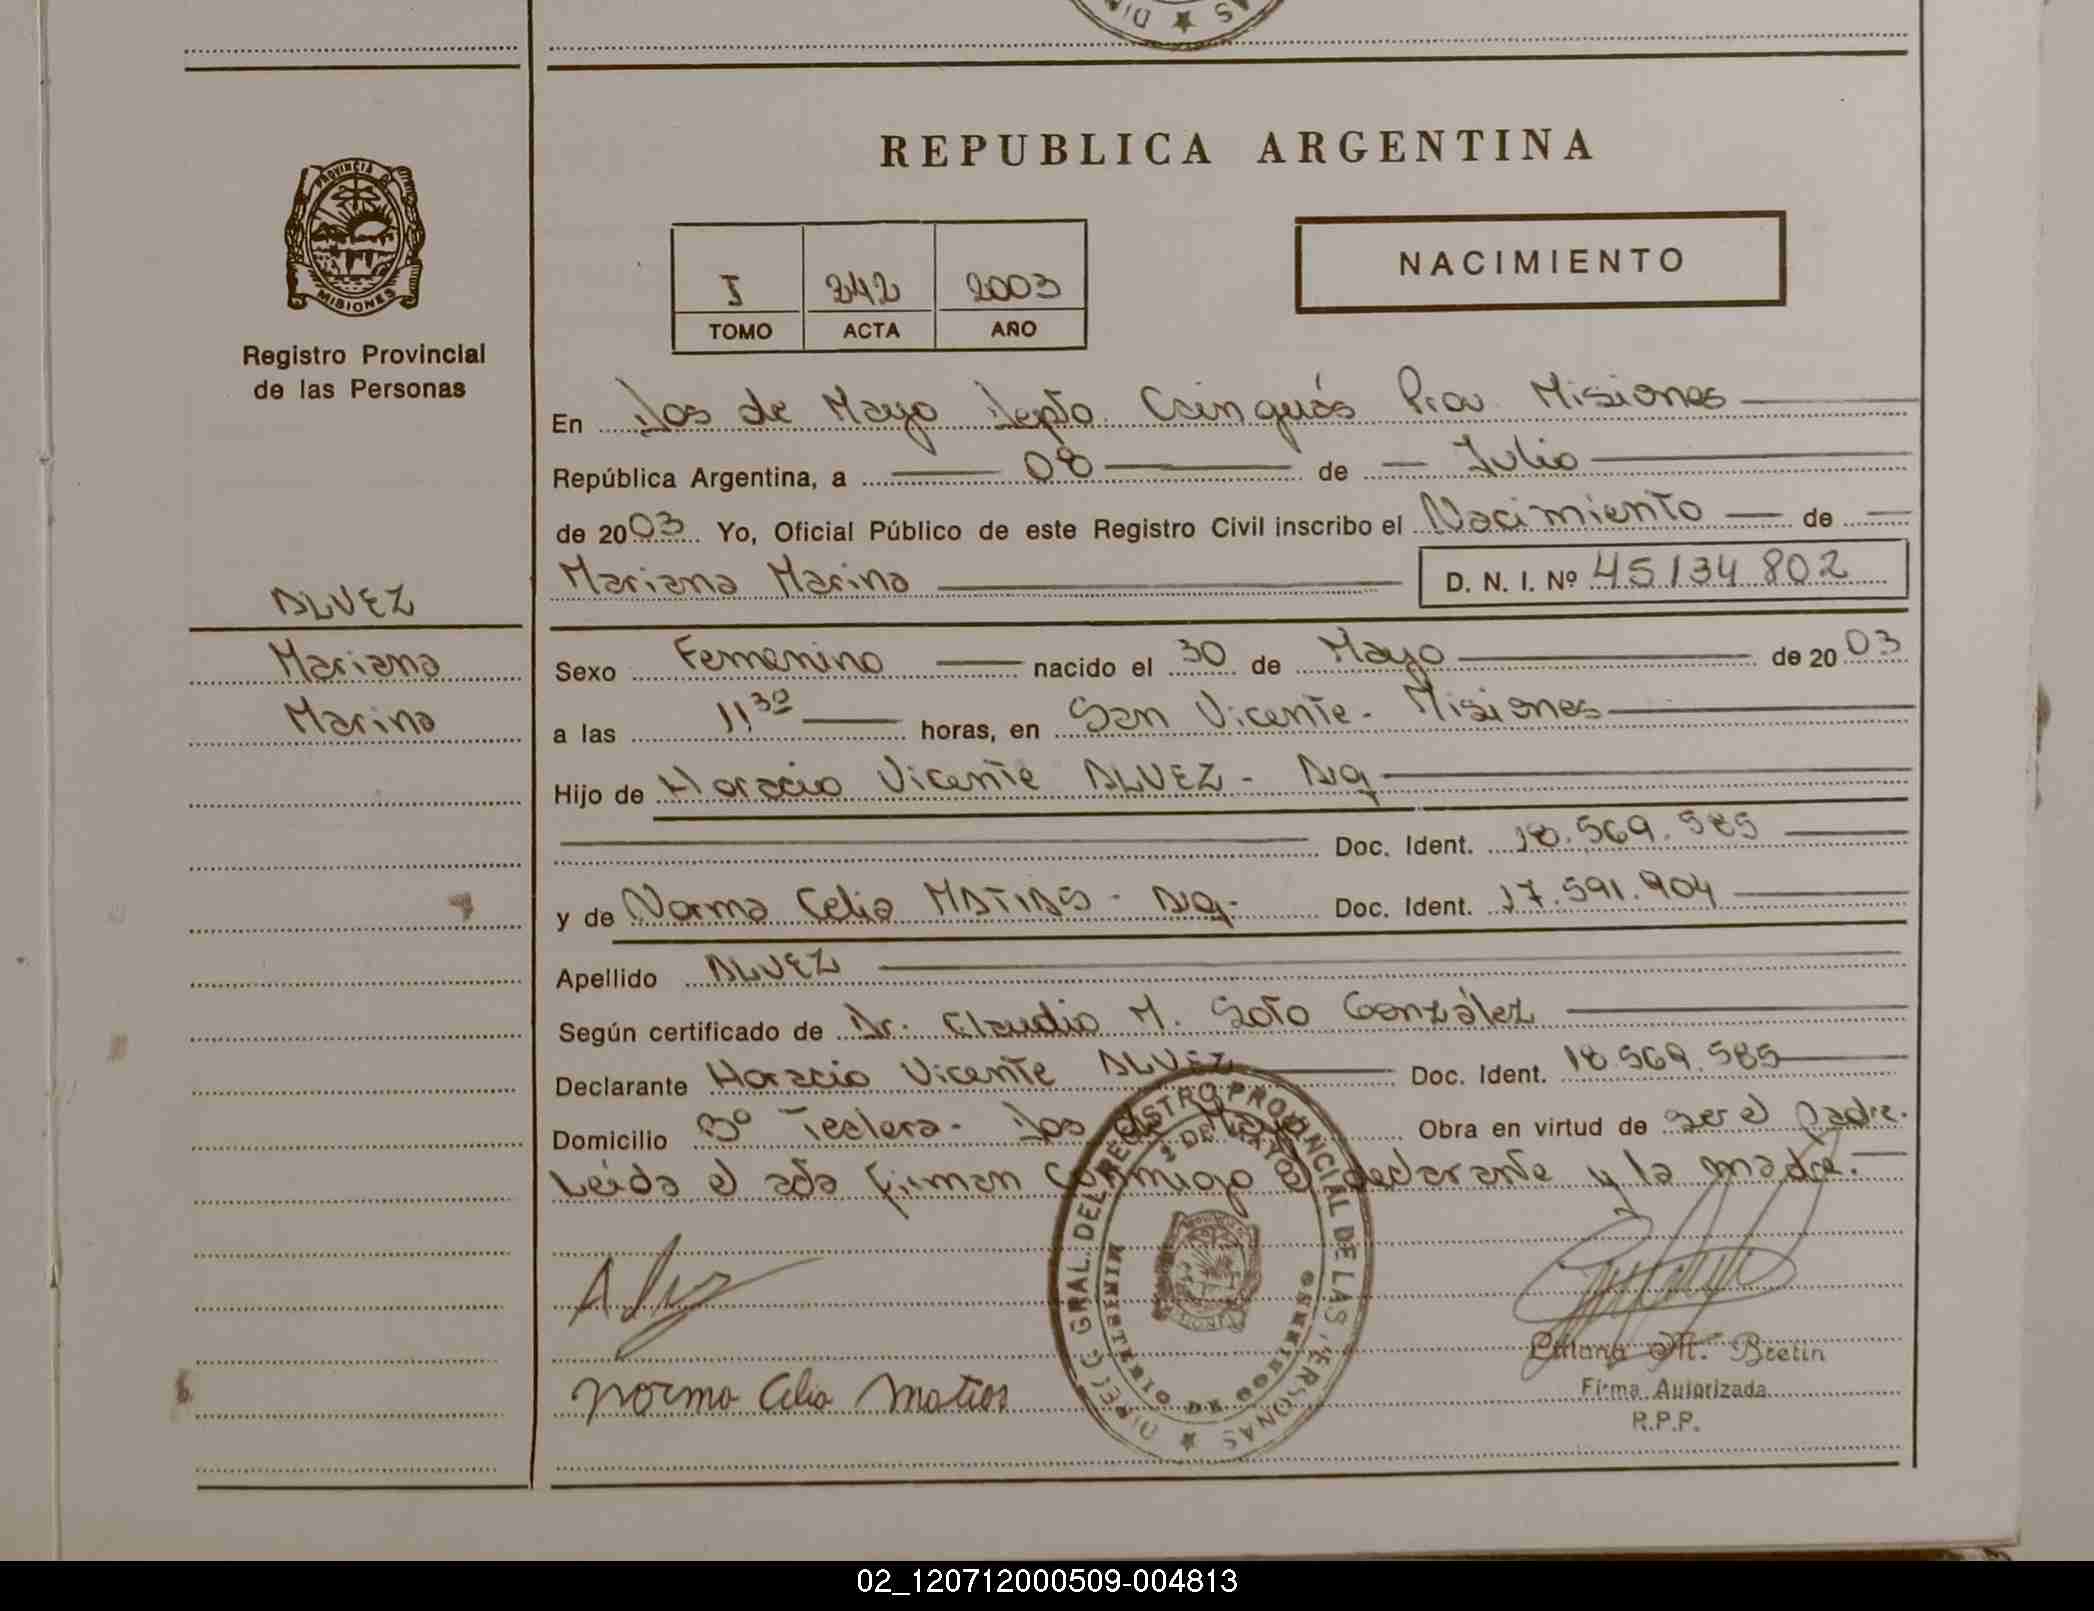 REPUBLICA ARGENTINA
PROVINCIA D
MISIONES
Registro Provincial
de las Personas
I 242 2003
TOMO ACTA AÑO
NACIMIENTO
En Dos de Mayo Depto. Cainguás Prov. Misiones
República Argentina, a 08 de Julio
de 2003 Yo, Oficial Público de este Registro Civil inscribo el Nacimiento de
Mariana Marina D. N. I. Nº 45134802
ALVEZ
Mariana
Marina
Sexo Femenino nacido el 30 de Mayo de 2003
a las 11,30 horas, en San Vicente - Misiones
Hijo de Horacio Vicente ALVEZ - Arg
Doc. Ident. 18.569.585
y de Norma Celia MATIAS - Arg - Doc. Ident. 17.591.904
Apellido ALVEZ
Según certificado de Dr. Claudio M. Soto González
Declarante Horacio Vicente ALVEZ Doc. Ident. 18.569.585
Domicilio Bº Teclera - Dos de Mayo Obra en virtud de ser el padre.
Leída el acta firman conmigo el declarante y la madre.
DIREC. GRAL. DEL REGISTRO PROVINCIAL DE LAS PERSONAS
2 DE MAYO
Norma Celia Matias
M. Bretin
Firma Autorizada
R.P.P.
02_120712000509-004813